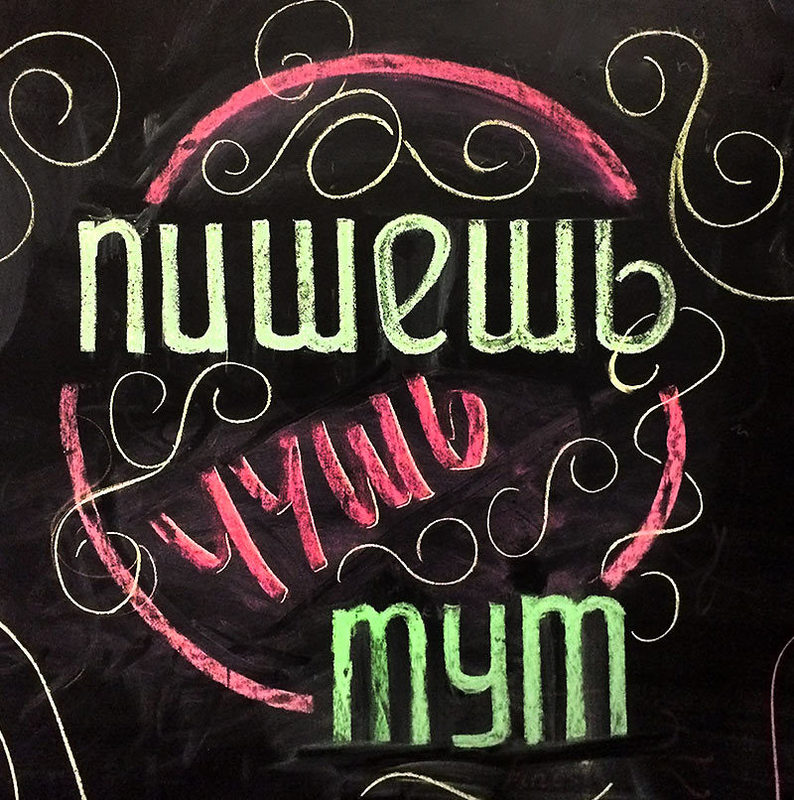 пишешь
чушь
тут